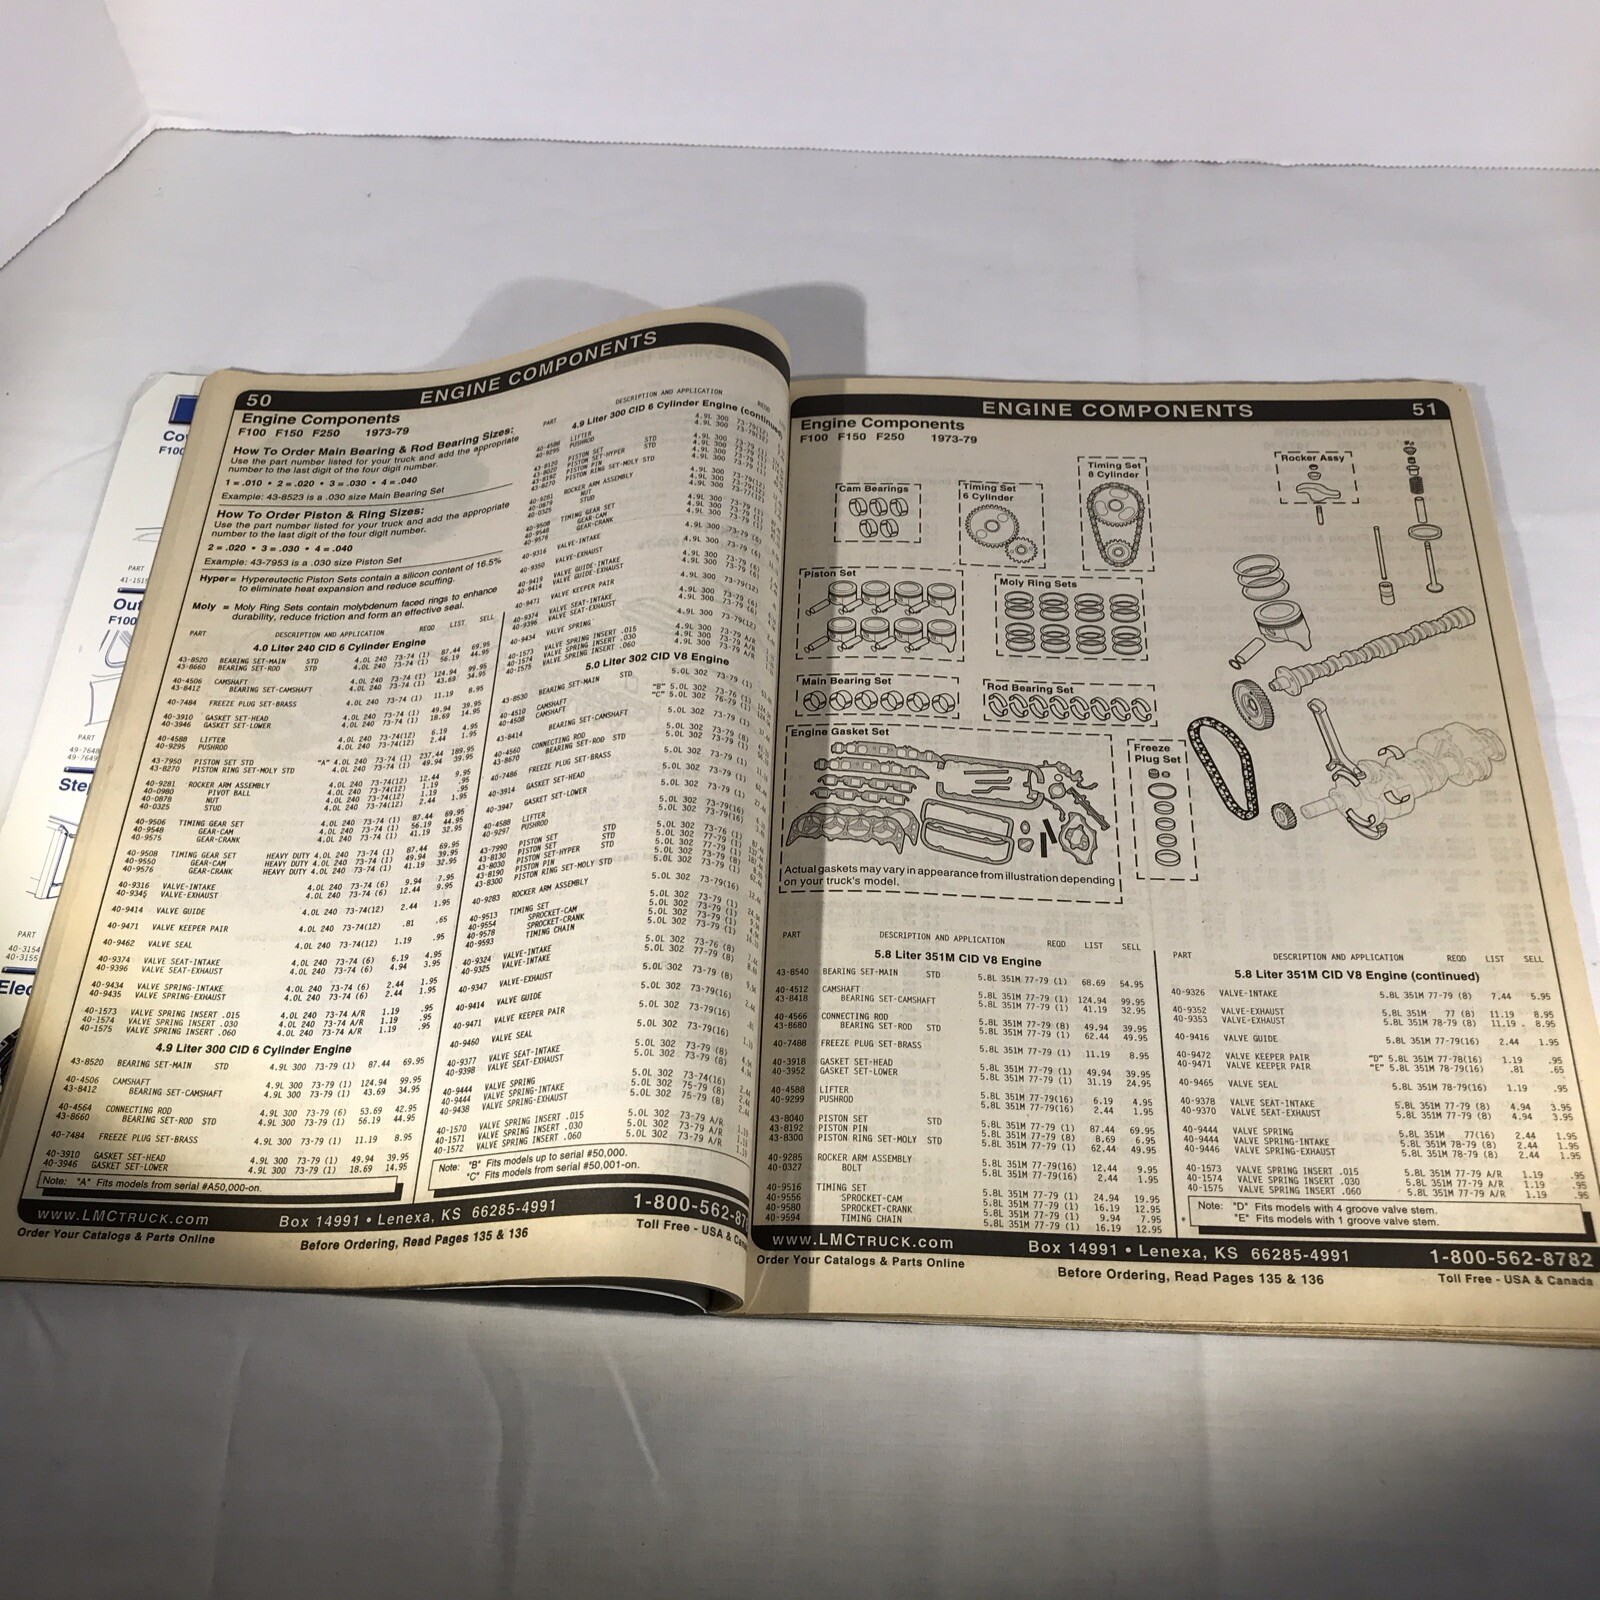 50
ENGINE COMPONENTS
Engine Components
F100 F150 F250 1973-79
How To Order Main Bearing & Rod Bearing Sizes:
Use the part number listed for your truck and add the appropriate
number to the last digit of the four digit number.
1 = .010 • 2 = .020 • 3 = .030 • 4 = .040
Example: 43-8523 is a .030 size Main Bearing Set
How To Order Piston & Ring Sizes:
Use the part number listed for your truck and add the appropriate
number to the last digit of the four digit number.
2 = .020 • 3 = .030 • 4 = .040
Example: 43-7953 is a .030 size Piston Set
Hyper = Hypereutectic Piston Sets contain a silicon content of 16.5%
to eliminate heat expansion and reduce scuffing.
Moly = Moly Ring Sets contain molybdenum faced rings to enhance
durability, reduce friction and form an effective seal.
PART DESCRIPTION AND APPLICATION REQD LIST SELL
4.0 Liter 240 CID 6 Cylinder Engine
43-8520 BEARING SET-MAIN STD 4.0L 240 73-74 (1) 87.44 69.95
43-8660 BEARING SET-ROD STD 4.0L 240 73-74 (1) 56.19 44.95
40-4506 CAMSHAFT 4.0L 240 73-74 (1) 124.94 99.95
43-8412 BEARING SET-CAMSHAFT 4.0L 240 73-74 (1) 43.69 34.95
40-7484 FREEZE PLUG SET-BRASS 4.0L 240 73-74 (1) 11.19 8.95
40-3910 GASKET SET-HEAD 4.0L 240 73-74 (1) 49.94 39.95
40-3946 GASKET SET-LOWER 4.0L 240 73-74 (1) 18.69 14.95
40-4588 LIFTER 4.0L 240 73-74(12) 6.19 4.95
40-9295 PUSHROD 4.0L 240 73-74(12) 2.44 1.95
43-7950 PISTON SET STD "A" 4.0L 240 73-74 (1) 237.44 189.95
43-8270 PISTON RING SET-MOLY STD 4.0L 240 73-74 (1) 49.94 39.95
40-9281 ROCKER ARM ASSEMBLY 4.0L 240 73-74(12) 12.44 9.95
40-0980 PIVOT BALL 4.0L 240 73-74(12) 1.19 .95
40-0878 NUT 4.0L 240 73-74(12) 1.19 .95
40-0325 STUD 4.0L 240 73-74(12) 2.44 1.95
40-9506 TIMING GEAR SET 4.0L 240 73-74 (1) 87.44 69.95
40-9548 GEAR-CAM 4.0L 240 73-74 (1) 56.19 44.95
40-9575 GEAR-CRANK 4.0L 240 73-74 (1) 41.19 32.95
40-9508 TIMING GEAR SET HEAVY DUTY 4.0L 240 73-74 (1) 87.44 69.95
40-9550 GEAR-CAM HEAVY DUTY 4.0L 240 73-74 (1) 49.94 39.95
40-9576 GEAR-CRANK HEAVY DUTY 4.0L 240 73-74 (1) 41.19 32.95
40-9316 VALVE-INTAKE 4.0L 240 73-74 (6) 9.94 7.95
40-9345 VALVE-EXHAUST 4.0L 240 73-74 (6) 12.44 9.95
40-9414 VALVE GUIDE 4.0L 240 73-74(12) 2.44 1.95
40-9471 VALVE KEEPER PAIR 4.0L 240 73-74(12) .81 .65
40-9462 VALVE SEAL 4.0L 240 73-74(12) 1.19 .95
40-9374 VALVE SEAT-INTAKE 4.0L 240 73-74 (6) 6.19 4.95
40-9396 VALVE SEAT-EXHAUST 4.0L 240 73-74 (6) 4.94 3.95
40-9434 VALVE SPRING-INTAKE 4.0L 240 73-74 (6) 2.44 1.95
40-9435 VALVE SPRING-EXHAUST 4.0L 240 73-74 (6) 2.44 1.95
40-1573 VALVE SPRING INSERT .015 4.0L 240 73-74 A/R 1.19 .95
40-1574 VALVE SPRING INSERT .030 4.0L 240 73-74 A/R 1.19 .95
40-1575 VALVE SPRING INSERT .060 4.0L 240 73-74 A/R 1.19 .95
4.9 Liter 300 CID 6 Cylinder Engine
43-8520 BEARING SET-MAIN STD 4.9L 300 73-79 (1) 87.44 69.95
40-4506 CAMSHAFT 4.9L 300 73-79 (1) 124.94 99.95
43-8412 BEARING SET-CAMSHAFT 4.9L 300 73-79 (1) 43.69 34.95
40-4564 CONNECTING ROD 4.9L 300 73-79 (6) 53.69 42.95
43-8660 BEARING SET-ROD STD 4.9L 300 73-79 (1) 56.19 44.95
40-7484 FREEZE PLUG SET-BRASS 4.9L 300 73-79 (1) 11.19 8.95
40-3910 GASKET SET-HEAD 4.9L 300 73-79 (1) 49.94 39.95
40-3946 GASKET SET-LOWER 4.9L 300 73-79 (1) 18.69 14.95
Note: "A" Fits models from serial #A50,000-on.
PART DESCRIPTION AND APPLICATION REQD
4.9 Liter 300 CID 6 Cylinder Engine (continued)
40-4588 LIFTER 4.9L 300 73-79(12)
40-9295 PUSHROD 4.9L 300 73-79(12)
43-8120 PISTON SET STD 4.9L 300 73-79 (1)
43-8020 PISTON SET-HYPER STD 4.9L 300 73-79 (1)
43-8192 PISTON PIN 4.9L 300
43-8270 PISTON RING SET-MOLY STD 4.9L 300 73-79 (1)
40-9281 ROCKER ARM ASSEMBLY 4.9L 300 73-79(12)
40-0879 NUT 4.9L 300
40-0325 STUD 4.9L 300
40-9508 TIMING GEAR SET 4.9L 300 73-79 (1)
40-9548 GEAR-CAM 4.9L 300 73-79 (1)
40-9576 GEAR-CRANK 4.9L 300 73-79 (1)
40-9316 VALVE-INTAKE 4.9L 300 73-79 (6)
40-9350 VALVE-EXHAUST 4.9L 300 73-79 (6)
40-9419 VALVE GUIDE-INTAKE 4.9L 300 73-79 (6)
40-9414 VALVE GUIDE-EXHAUST 4.9L 300 73-79 (6)
40-9471 VALVE KEEPER PAIR 4.9L 300 73-79(12)
40-9374 VALVE SEAT-INTAKE 4.9L 300 73-79 (6)
40-9396 VALVE SEAT-EXHAUST 4.9L 300 73-79 (6)
40-9434 VALVE SPRING 4.9L 300 73-79(12)
40-1573 VALVE SPRING INSERT .015 4.9L 300 73-79 A/R
40-1574 VALVE SPRING INSERT .030 4.9L 300 73-79 A/R
40-1575 VALVE SPRING INSERT .060 4.9L 300 73-79 A/R
5.0 Liter 302 CID V8 Engine
43-8530 BEARING SET-MAIN STD 5.0L 302 73-79 (1)
40-4510 CAMSHAFT "B" 5.0L 302 73-76 (1)
40-4508 CAMSHAFT "C" 5.0L 302 76-79 (1)
43-8414 BEARING SET-CAMSHAFT 5.0L 302 73-79 (1)
40-4560 CONNECTING ROD 5.0L 302 73-79 (8)
43-8670 BEARING SET-ROD STD 5.0L 302 73-79 (1)
40-7486 FREEZE PLUG SET-BRASS 5.0L 302 73-79 (1)
40-3914 GASKET SET-HEAD 5.0L 302 73-79 (1)
40-3947 GASKET SET-LOWER 5.0L 302 73-79 (1)
40-4588 LIFTER 5.0L 302 73-79(16)
40-9297 PUSHROD 5.0L 302 73-79(16)
43-7990 PISTON SET STD 5.0L 302 73-76 (1)
43-8130 PISTON SET STD 5.0L 302 77-79 (1)
43-8030 PISTON SET-HYPER STD 5.0L 302 73-79 (1)
43-8190 PISTON PIN 5.0L 302 73-79 (8)
43-8300 PISTON RING SET-MOLY STD 5.0L 302 73-79 (1)
40-9283 ROCKER ARM ASSEMBLY 5.0L 302 73-79(16)
40-9513 TIMING SET 5.0L 302 73-79 (1)
40-9554 SPROCKET-CAM 5.0L 302 73-79 (1)
40-9578 SPROCKET-CRANK 5.0L 302 73-79 (1)
40-9593 TIMING CHAIN 5.0L 302 73-79 (1)
40-9324 VALVE-INTAKE 5.0L 302 73-76 (8)
40-9325 VALVE-INTAKE 5.0L 302 77-79 (8)
40-9347 VALVE-EXHAUST 5.0L 302 73-79 (8)
40-9414 VALVE GUIDE 5.0L 302 73-79(16)
40-9471 VALVE KEEPER PAIR 5.0L 302 73-79(16)
40-9460 VALVE SEAL 5.0L 302 73-79(16)
40-9377 VALVE SEAT-INTAKE 5.0L 302 73-79 (8)
40-9398 VALVE SEAT-EXHAUST 5.0L 302 73-79 (8)
40-9444 VALVE SPRING 5.0L 302 73-74(16)
40-9444 VALVE SPRING-INTAKE 5.0L 302 75-79 (8)
40-9438 VALVE SPRING-EXHAUST 5.0L 302 75-79 (8)
40-1570 VALVE SPRING INSERT .015 5.0L 302 73-79 A/R
40-1571 VALVE SPRING INSERT .030 5.0L 302 73-79 A/R
40-1572 VALVE SPRING INSERT .060 5.0L 302 73-79 A/R
Note: "B" Fits models up to serial #50,000.
"C" Fits models from serial #50,001-on.
www.LMCTRUCK.com Box 14991 • Lenexa, KS 66285-4991 1-800-562-87
Order Your Catalogs & Parts Online Before Ordering, Read Pages 135 & 136 Toll Free - USA &
ENGINE COMPONENTS 51
Engine Components
F100 F150 F250 1973-79
Cam Bearings
Timing Set
6 Cylinder
Timing Set
8 Cylinder
Rocker Assy
Piston Set
Moly Ring Sets
Main Bearing Set
Rod Bearing Set
Engine Gasket Set
Freeze
Plug Set
Actual gaskets may vary in appearance from illustration depending
on your truck's model.
PART DESCRIPTION AND APPLICATION REQD LIST SELL
5.8 Liter 351M CID V8 Engine
43-8540 BEARING SET-MAIN STD 5.8L 351M 77-79 (1) 68.69 54.95
40-4512 CAMSHAFT 5.8L 351M 77-79 (1) 124.94 99.95
43-8418 BEARING SET-CAMSHAFT 5.8L 351M 77-79 (1) 41.19 32.95
40-4566 CONNECTING ROD 5.8L 351M 77-79 (8) 49.94 39.95
43-8680 BEARING SET-ROD STD 5.8L 351M 77-79 (1) 62.44 49.95
40-7488 FREEZE PLUG SET-BRASS 5.8L 351M 77-79 (1) 11.19 8.95
40-3918 GASKET SET-HEAD 5.8L 351M 77-79 (1) 49.94 39.95
40-3952 GASKET SET-LOWER 5.8L 351M 77-79 (1) 31.19 24.95
40-4588 LIFTER 5.8L 351M 77-79(16) 6.19 4.95
40-9299 PUSHROD 5.8L 351M 77-79(16) 2.44 1.95
43-8040 PISTON SET STD 5.8L 351M 77-79 (1) 87.44 69.95
43-8192 PISTON PIN 5.8L 351M 77-79 (8) 8.69 6.95
43-8300 PISTON RING SET-MOLY STD 5.8L 351M 77-79 (1) 62.44 49.95
40-9285 ROCKER ARM ASSEMBLY 5.8L 351M 77-79(16) 12.44 9.95
40-0327 BOLT 5.8L 351M 77-79(16) 2.44 1.95
40-9516 TIMING SET 5.8L 351M 77-79 (1) 24.94 19.95
40-9556 SPROCKET-CAM 5.8L 351M 77-79 (1) 16.19 12.95
40-9580 SPROCKET-CRANK 5.8L 351M 77-79 (1) 9.94 7.95
40-9594 TIMING CHAIN 5.8L 351M 77-79 (1) 16.19 12.95
PART DESCRIPTION AND APPLICATION REQD LIST SELL
5.8 Liter 351M CID V8 Engine (continued)
40-9326 VALVE-INTAKE 5.8L 351M 77-79 (8) 7.44 5.95
40-9352 VALVE-EXHAUST 5.8L 351M 77 (8) 11.19 8.95
40-9353 VALVE-EXHAUST 5.8L 351M 78-79 (8) 11.19 8.95
40-9416 VALVE GUIDE 5.8L 351M 77-79(16) 2.44 1.95
40-9472 VALVE KEEPER PAIR "D" 5.8L 351M 77-78(16) 1.19 .95
40-9471 VALVE KEEPER PAIR "E" 5.8L 351M 78-79(16) .81 .65
40-9465 VALVE SEAL 5.8L 351M 77-79(16) 1.19 .95
40-9378 VALVE SEAT-INTAKE 5.8L 351M 77-79 (8) 4.94 3.95
40-9370 VALVE SEAT-EXHAUST 5.8L 351M 77-79 (8) 4.94 3.95
40-9444 VALVE SPRING 5.8L 351M 77(16) 2.44 1.95
40-9444 VALVE SPRING-INTAKE 5.8L 351M 78-79 (8) 2.44 1.95
40-9446 VALVE SPRING-EXHAUST 5.8L 351M 78-79 (8) 2.44 1.95
40-1573 VALVE SPRING INSERT .015 5.8L 351M 77-79 A/R 1.19 .95
40-1574 VALVE SPRING INSERT .030 5.8L 351M 77-79 A/R 1.19 .95
40-1575 VALVE SPRING INSERT .060 5.8L 351M 77-79 A/R 1.19 .95
Note: "D" Fits models with 4 groove valve stem.
"E" Fits models with 1 groove valve stem.
www.LMCTRUCK.com Box 14991 • Lenexa, KS 66285-4991 1-800-562-8782
Order Your Catalogs & Parts Online Before Ordering, Read Pages 135 & 136 Toll Free - USA & Canada
F100
PART
F100
PART
PART
40-3154
40-3155